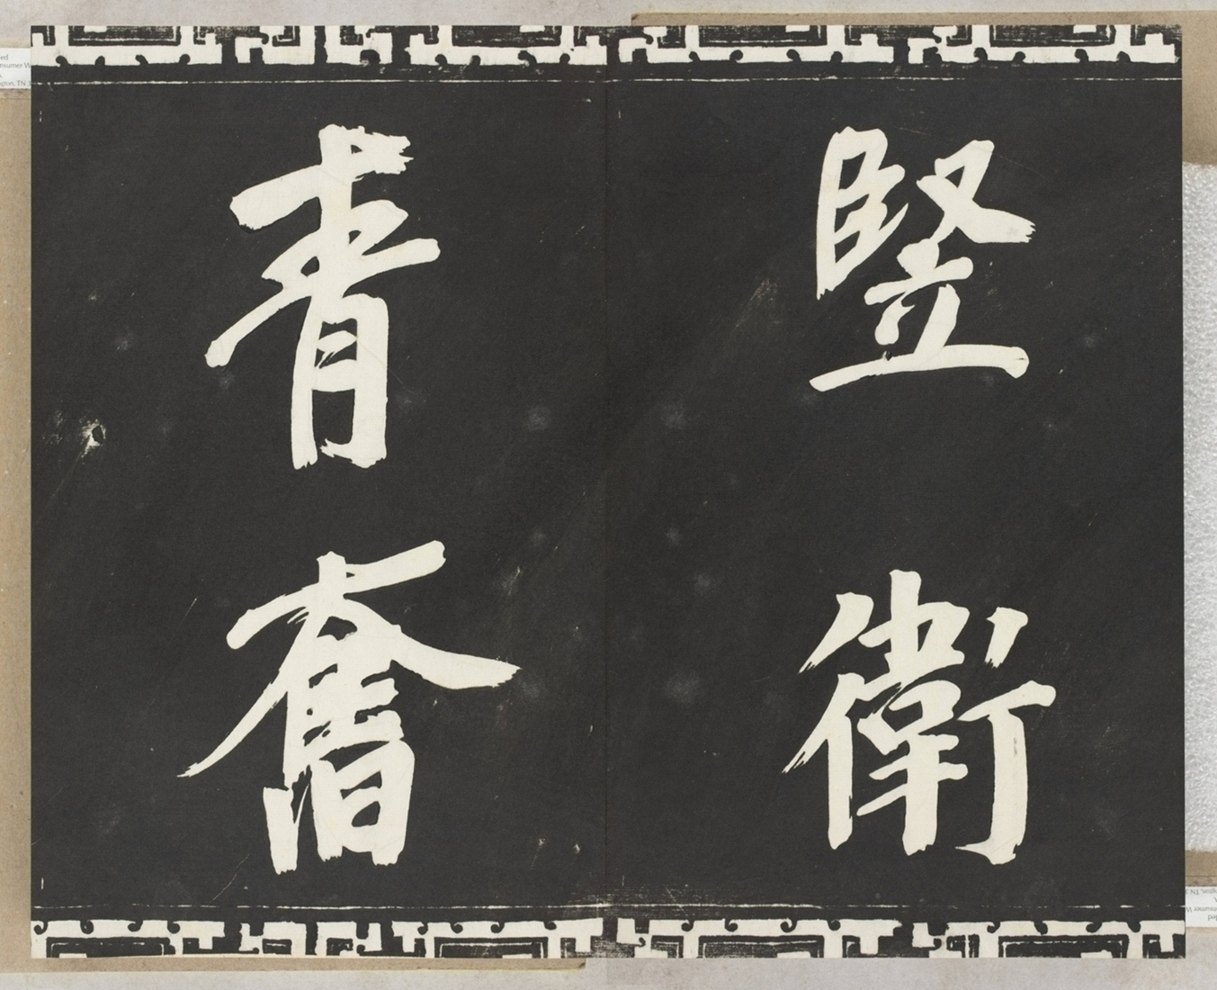 豎衛
青奮